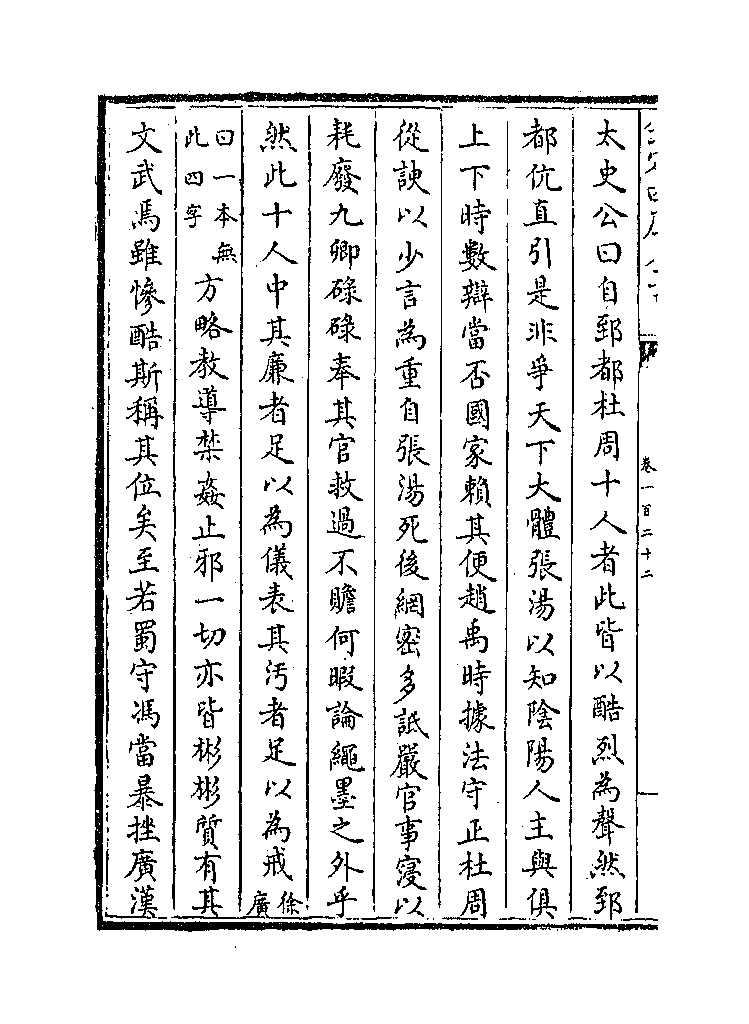 太史公曰自郅都杜周十人者此皆以酷烈為聲然郅
都伉直引是非爭天下大體張湯以知陰陽人主與俱
上下時數辯當否國家賴其便趙禹時據法守正杜周
從諛以少言為重自張湯死後網密多詆嚴官事寖以
耗廢九卿碌碌奉其官救過不贍何暇論繩墨之外乎
然此十人中其廉者足以為儀表其汚者足以為戒徐廣
曰一本無此四字方略教導禁姦止邪一切亦皆彬彬質有其
文武焉雖慘酷斯稱其位矣至若蜀守馮當暴挫廣漢
卷一百二十二